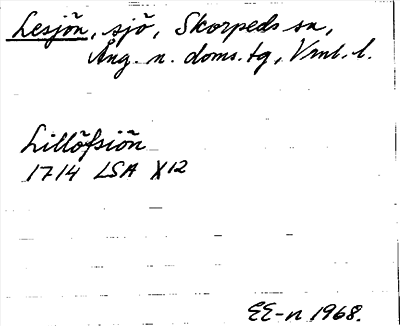 Lesjön, sjö, Skorpeds sn,
Ång. n. doms. tg, Vrnl. l.
Lillöfsiön
1714 LSA X12
EE-n 1968.